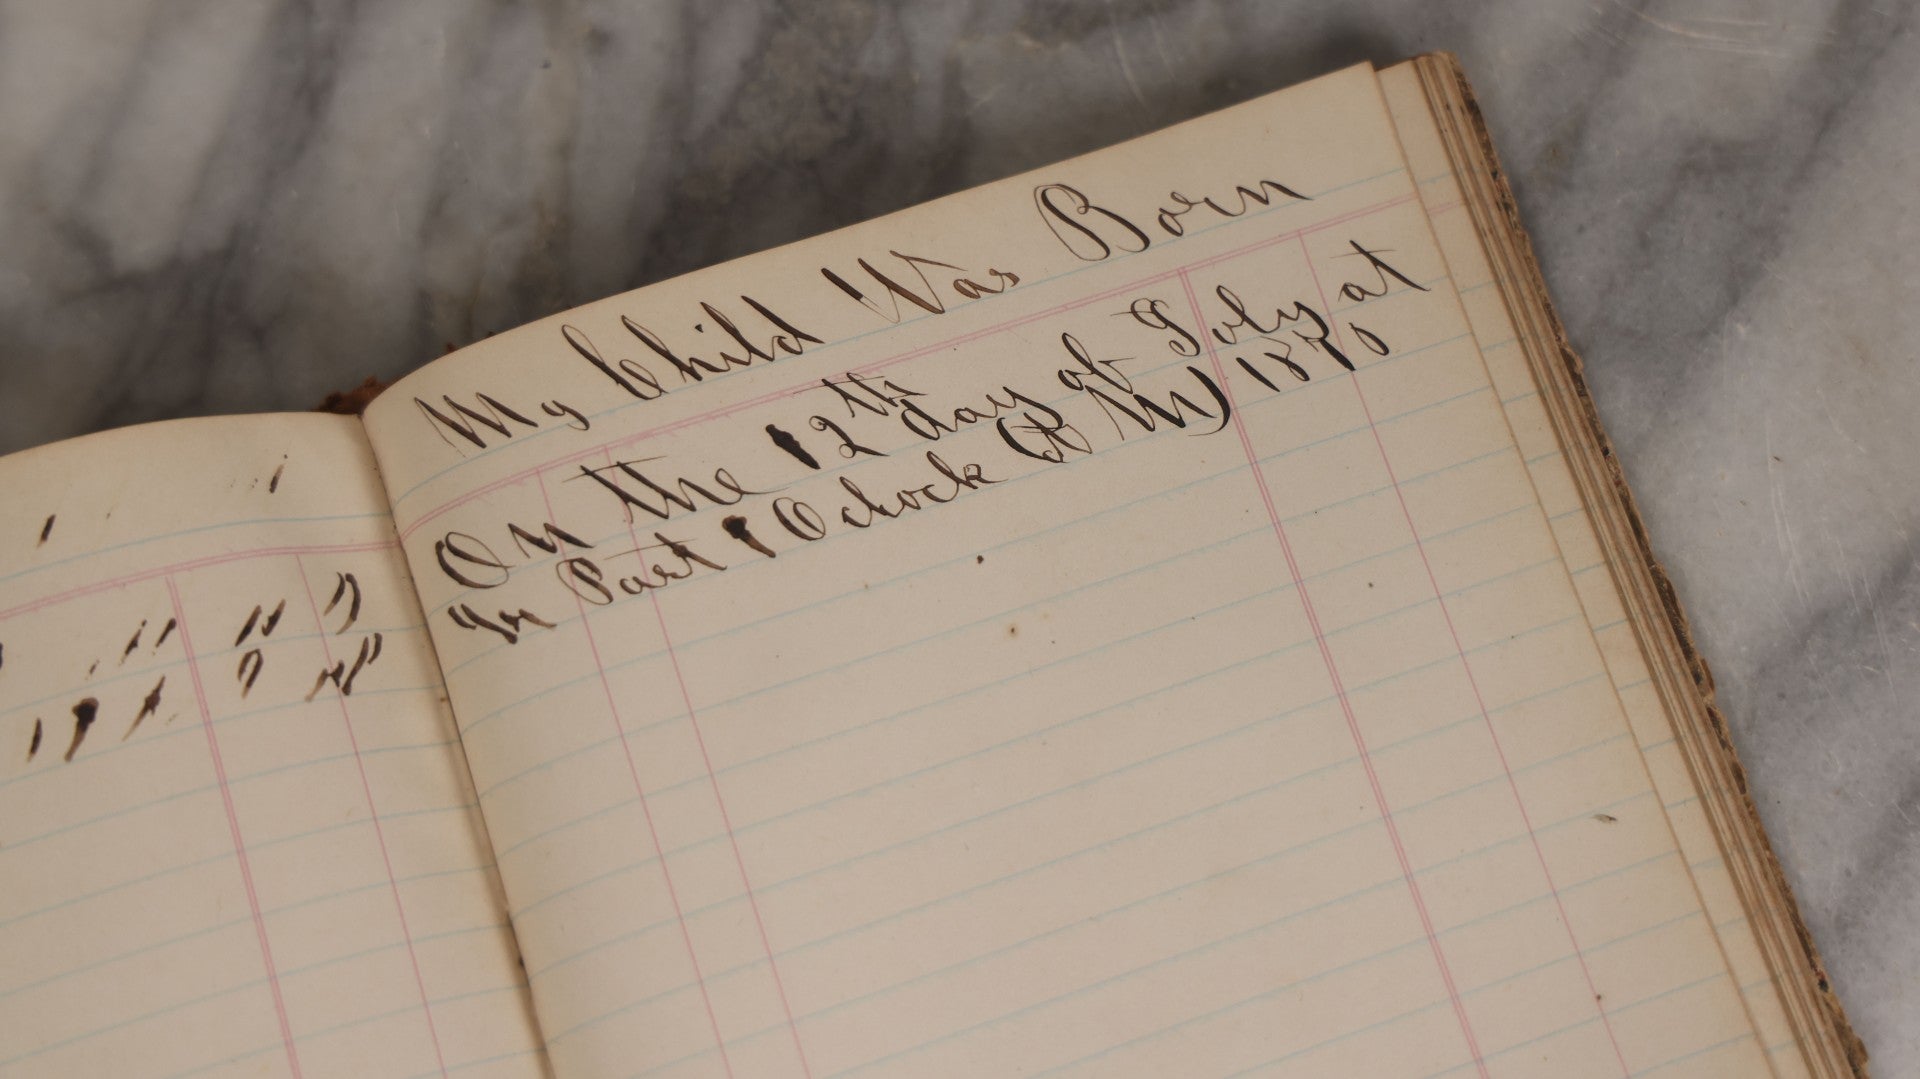 My Child Was Born
On the 12th day of July at
Past 1 Oclock A M) 1870